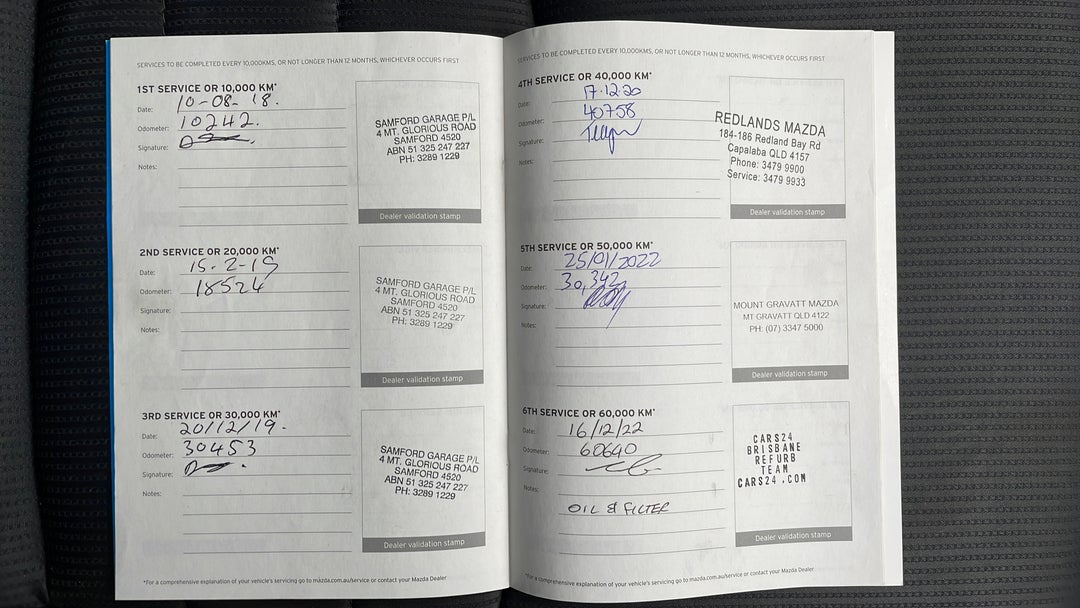 SERVICES TO BE COMPLETED EVERY 10,000KMS, OR NOT LONGER THAN 12 MONTHS, WHICHEVER OCCURS FIRST
1ST SERVICE OR 10,000 KM*
Date: 10-08-18.
Odometer: 10242.
Signature:
Notes:
SAMFORD GARAGE P/L
4 MT. GLORIOUS ROAD
SAMFORD 4520
ABN 51 325 247 227
PH: 3289 1229
Dealer validation stamp
2ND SERVICE OR 20,000 KM*
Date: 15-2-19
Odometer: 18524
Signature:
Notes:
SAMFORD GARAGE P/L
4 MT. GLORIOUS ROAD
SAMFORD 4520
ABN 51 325 247 227
PH: 3289 1229
Dealer validation stamp
3RD SERVICE OR 30,000 KM*
Date: 20/12/19.
Odometer: 30453
Signature:
Notes:
SAMFORD GARAGE P/L
4 MT. GLORIOUS ROAD
SAMFORD 4520
ABN 51 325 247 227
PH: 3289 1229
Dealer validation stamp
*For a comprehensive explanation of your vehicle's servicing go to mazda.com.au/service or contact your Mazda Dealer
SERVICES TO BE COMPLETED EVERY 10,000KMS, OR NOT LONGER THAN 12 MONTHS, WHICHEVER OCCURS FIRST
4TH SERVICE OR 40,000 KM*
Date: 17.12.20
Odometer: 40758
Signature:
Notes:
REDLANDS MAZDA
184-186 Redland Bay Rd
Capalaba QLD 4157
Phone: 3479 9900
Service: 3479 9933
Dealer validation stamp
5TH SERVICE OR 50,000 KM*
Date: 25/01/2022
Odometer: 30,342
Signature:
Notes:
MOUNT GRAVATT MAZDA
MT GRAVATT QLD 4122
PH: (07) 3347 5000
Dealer validation stamp
6TH SERVICE OR 60,000 KM*
Date: 16/12/22
Odometer: 60640
Signature:
Notes:
OIL & FILTER
CARS24
BRISBANE
REFURB
TEAM
CARS24.COM
Dealer validation stamp
*For a comprehensive explanation of your vehicle's servicing go to mazda.com.au/service or contact your Mazda Dealer